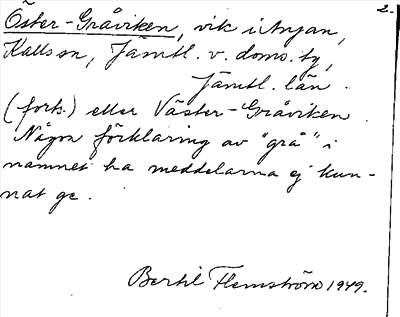 2.
Öster-Gråviken, vik i Anjan,
Kalls sn, Jämtl. v. doms. tg,
Jämtl. län.
(forts.) eller Väster-Gråviken.
Någon förklaring av "grå" i
namnet ha meddelarna ej kun-
nat ge.
Bertil Flemström 1949.